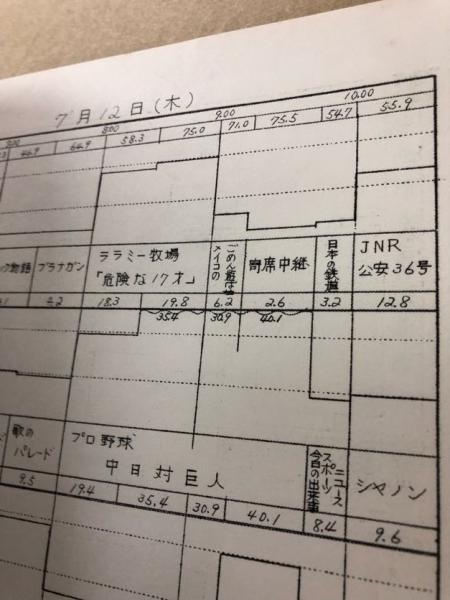 7月12日(木)
8.00 9.00 10.00
44.9 64.9 58.3 75.0 71.0 75.5 54.7 55.9
プラチナガン
ララミー牧場
「危険な17才」
メイコの
ごめん遊ばせ
寄席中継
日本の鉄道
JNR
公安36号
18.3 19.8 6.2 2.6 3.2 12.8
35.4 30.9 40.1
歌の
パレード
プロ野球
中日対巨人
今日の出来事
スポーツ
ニュース
シャノン
9.5 19.4 35.4 30.9 40.1 8.4 9.6